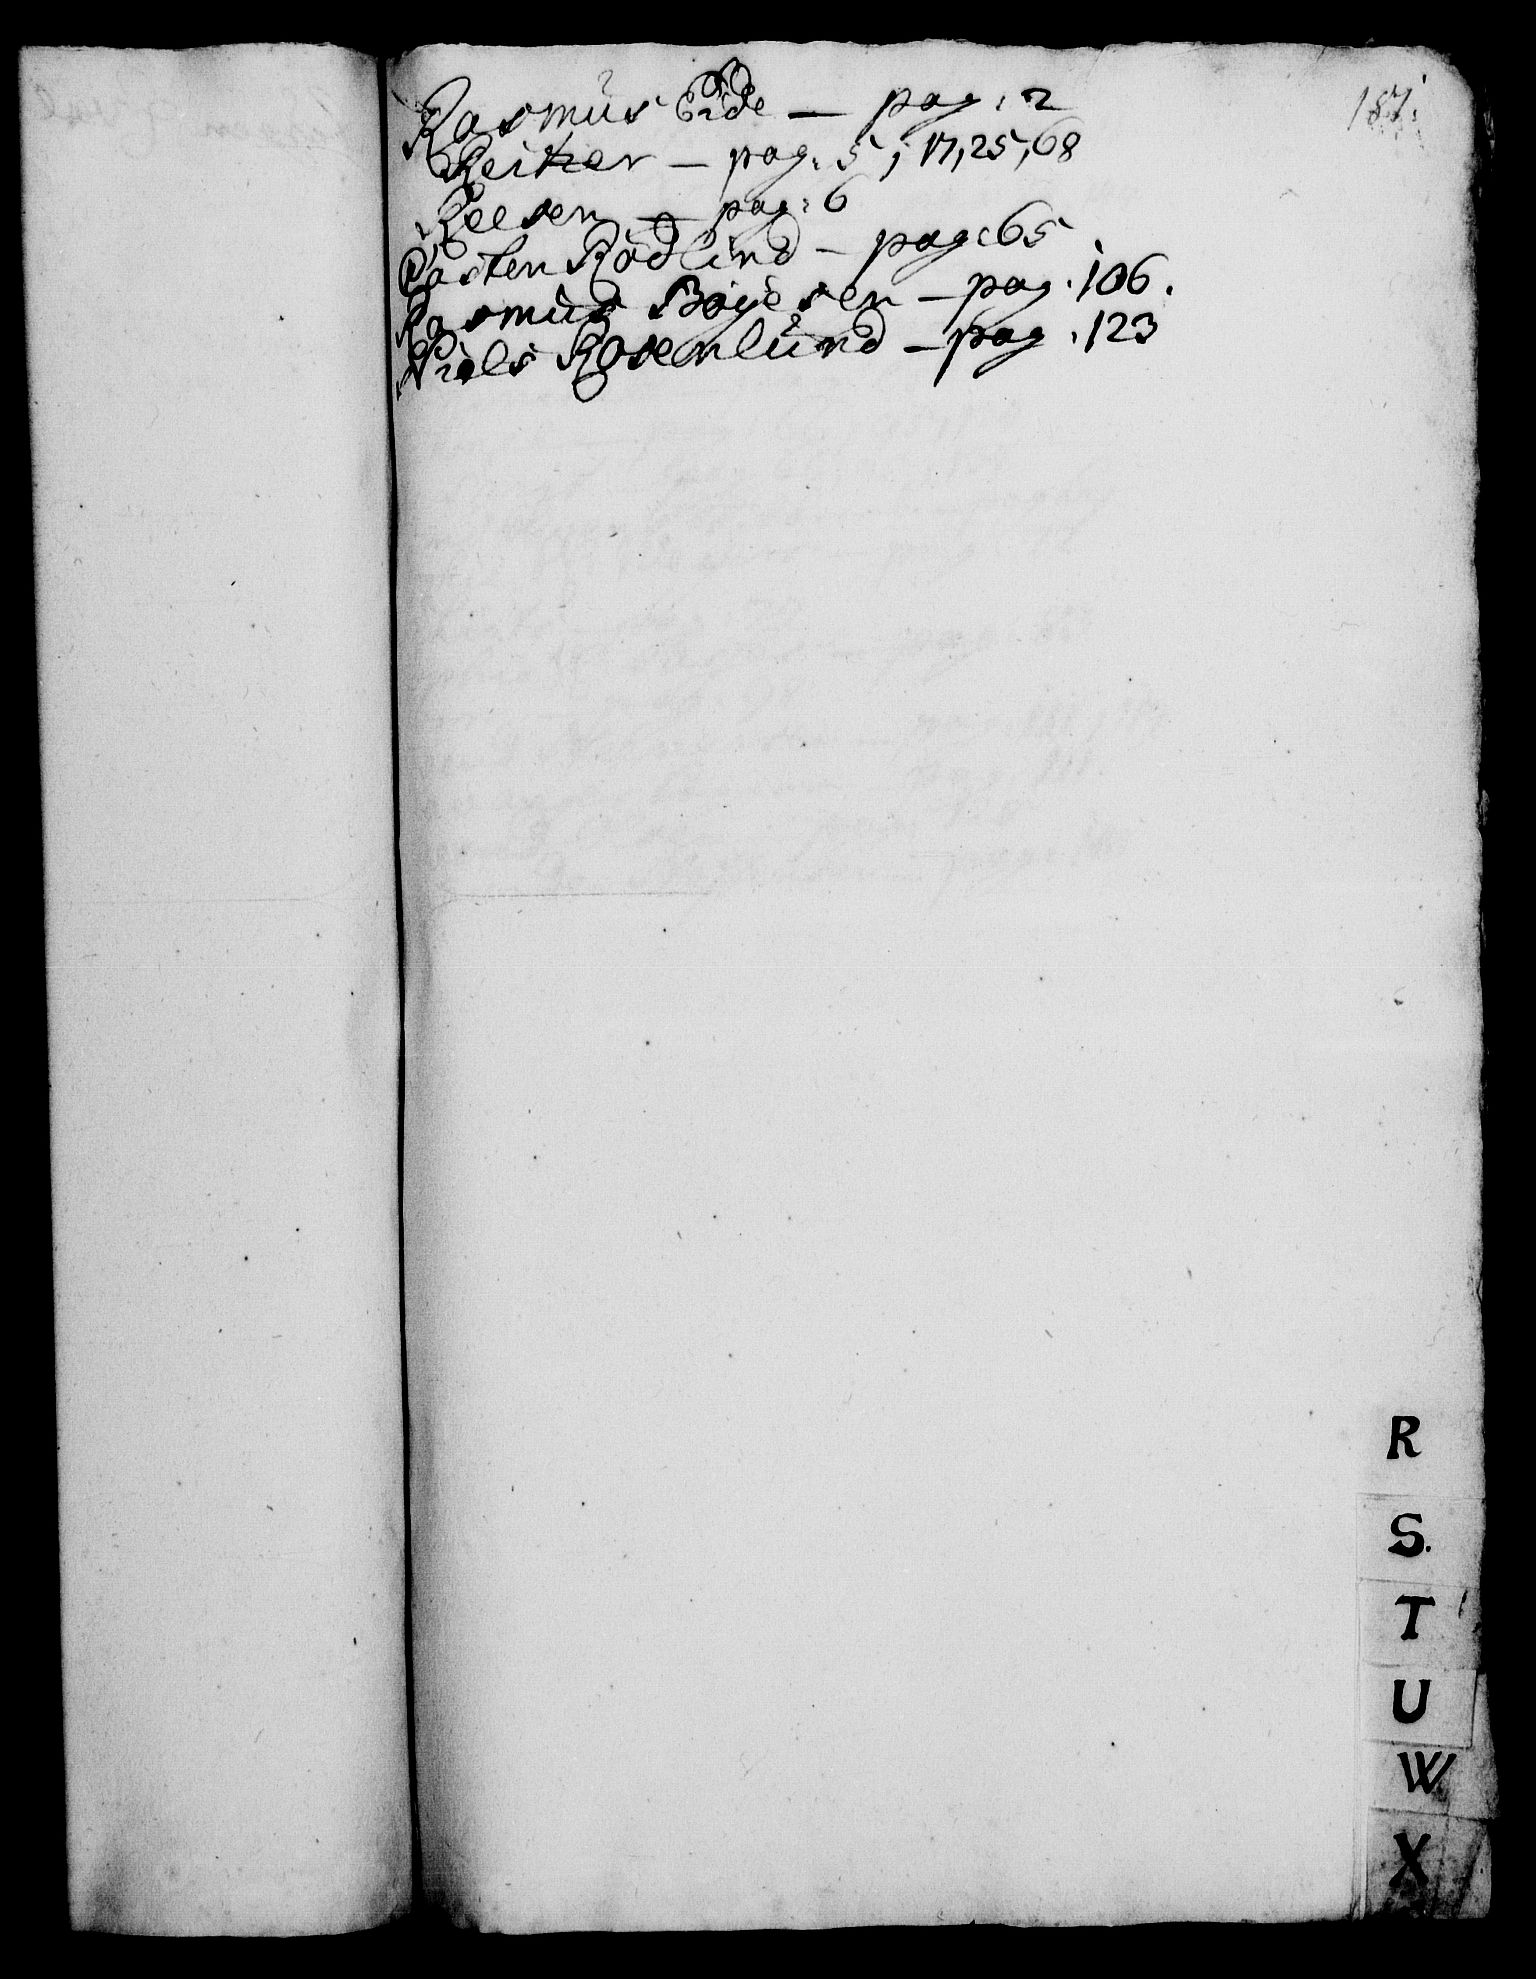 187.
Rasmus Eide — pag: 2
Reitzer — pag: 5, 17, 25, 68
Reesen — pag: 6
Carsten Rödlind — pag: 65
Rasmus Böyesen — pag. 106.
Niels Rosenlund — pag. 123
R
S.
T
U
W.
X